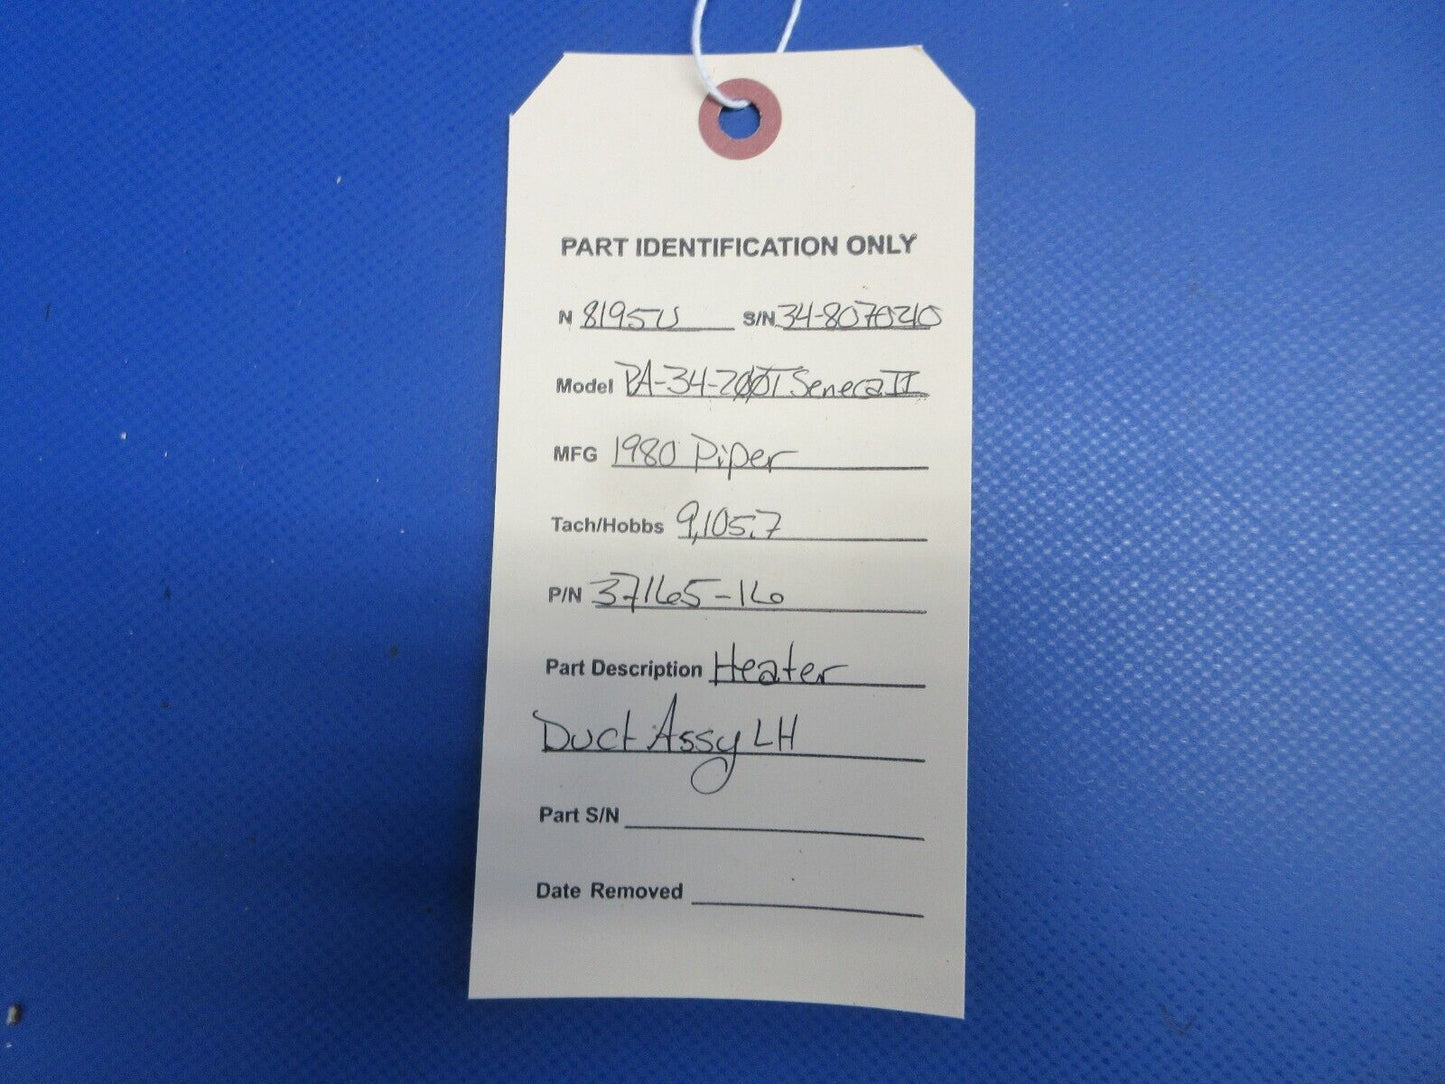 PART IDENTIFICATION ONLY
N 8195U S/N 34-8070210
Model PA-34-200T Seneca II
MFG 1980 Piper
Tach/Hobbs 9,105.7
P/N 37165-16
Part Description Heater
Duct Assy LH
Part S/N
Date Removed